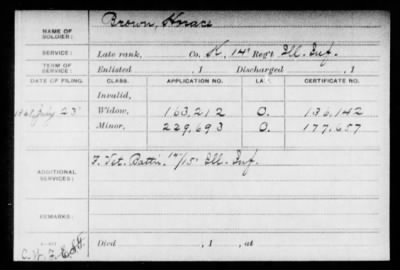 NAME OF SOLDIER: Brown, Horace
SERVICE: Late rank, Co. K, 14" Reg't Ill. Inf.
TERM OF SERVICE: Enlisted , 1 Discharged , 1
DATE OF FILING. CLASS. APPLICATION NO. CERTIFICATE NO.
Invalid,
July 23 Widow, 163,212 O. 136,142
Minor, 229,693 O. 177,657
ADDITIONAL SERVICES: F. Vet. Battn. 14/15 Ill. Inf.
REMARKS:
Died , 1 , at